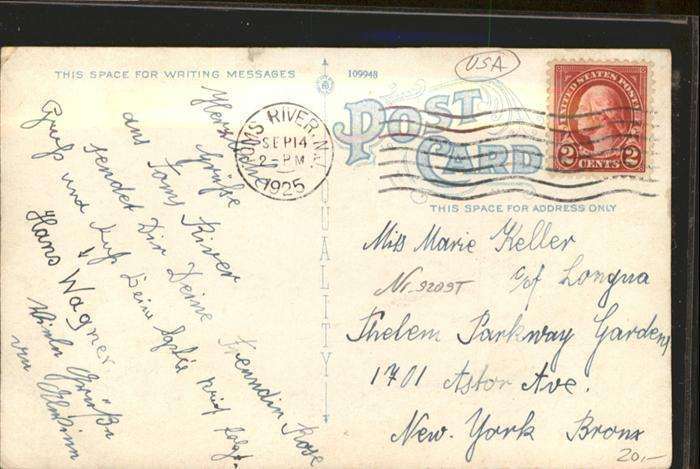 THIS SPACE FOR WRITING MESSAGES
109948
USA
POST
CARD
UNITED STATES POSTAGE
2 CENTS 2
S RIVER, N.J.
SEP 14
2-PM
1925
QUALITY
THIS SPACE FOR ADDRESS ONLY
Herzliche
Grüße
aus Toms River
sendet Dir Deine Freundin Rose
Gruß und Kuß Deine Sophie Brief folgt.
Hans Wagner
Viele Grüße
von
Miss Marie Keller
Nr. 9209T
c/of Longua
Phelem Parkway Gardens
1701 Astor Ave.
New-York Bronx
20,-